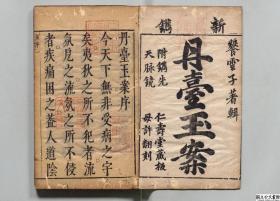 新鐫
雲子著輯
丹臺玉案
附鐫先
天脉鏡
仁壽堂藏板
毋許翻刻
丹臺玉案序
今天下無非受病之宇
矣夷狄之所不犯者流
氛見之流氛之所不侵
者疾痛困之蓋人道陰